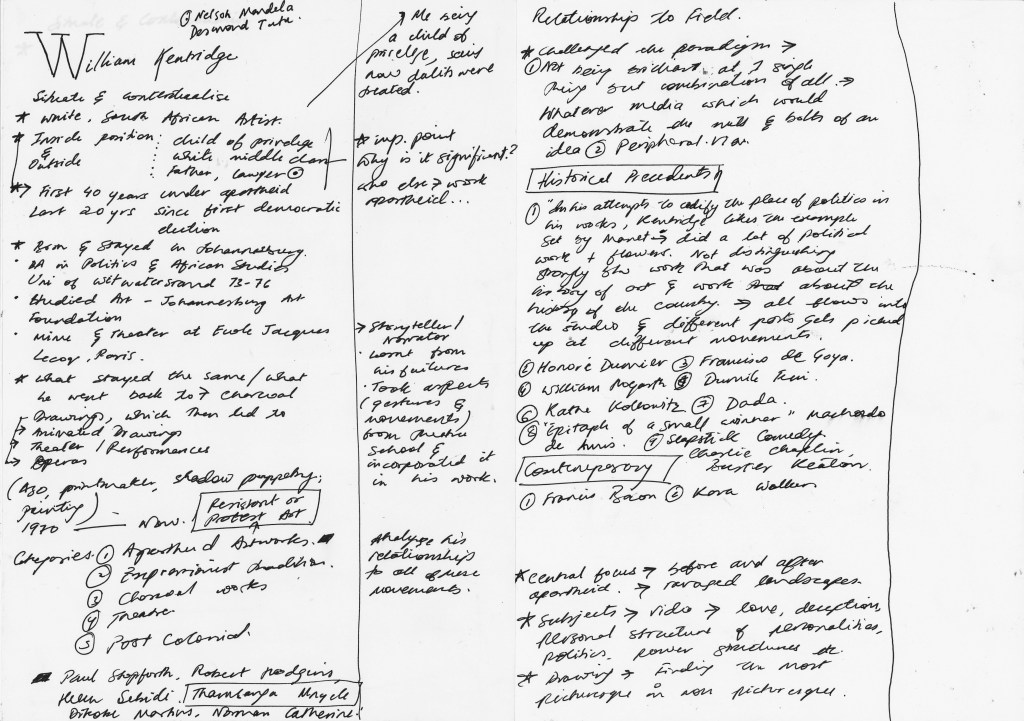 ① Nelson Mandela
Desmond Tutu
William Kentridge
Situate & contextualise
* White, South African Artist.
* Inside position : child of priveledge
& : white middle class
Outside : Father, lawyer
*→ First 40 years under apartheid
Last 20 yrs since first democratic
election
* Born & stayed in Johannesburg.
· BA in Politics & African Studies
Uni of Witwatersrand 73-76
· Studied Art - Johannesburg Art
Foundation
· Mime & Theater at Ecole Jacques
Lecoq, Paris.
* What stayed the same / what
he went back to → Charcoal
Drawings, which then led to
→ Animated Drawings
→ Theater / Performances
→ Operas
(Also, printmaker, shadow puppetry,
printing)
1970 — Now.
Resistant or
Protest Art.
Categories. ① Apartheid Artworks.
② Expressionist tradition.
③ Charcoal works
④ Theatre
⑤ Post Colonial.
Paul Stopforth, Robert Hodgins,
Helen Sebidi. Thamsanqa Mnyele
Dikobe Martins, Norman Catherine.
→ Me being
a child of
privelege, seeing
how dalits were
treated.
* imp. point
Why is it significant?
who else → work
apartheid...
→ Storyteller /
Narrator
· Learnt from
his failures
· Took aspects
(gestures &
movements)
from theatre
school &
incorporated it
in his work.
Analyse his
relationships
to all of these
movements.
Relationship to Field.
* Challenged the paradigm →
① Art being at 1 single
thing but combination of all. →
Whatever media which would
demonstrate the nuts & bolts of an
idea ② Peripheral
Historical Precedents
① "In his attempts to the place of politics in
his works, Kentridge takes the example
set by Manet → did a lot of political
work + flowers. Not distinguishing
strongly btw work that was about the
history of art & work about the
history of the country. → all flows into
the studio & different parts gets picked
up at different movements.
② Honoré Daumier ③ Francisco de Goya.
④ William Hogarth ⑤ Dumile Feni.
⑥ Kathe Kollowitz ⑦ Dada.
⑧ "Epitaph of a small winner" Machado
de Assis. ⑨ Slapstick Comedy
Charlie Chaplin,
Buster Keaton.
Contemporary
① Francis Bacon ② Kara Walker
* Central focus → before and after
apartheid. → ravaged landscapes.
* Subjects → video → love, deception,
personal structure of personalities,
politics, power structures etc.
* Drawing → Finding the most
picturesque in non picturesque.